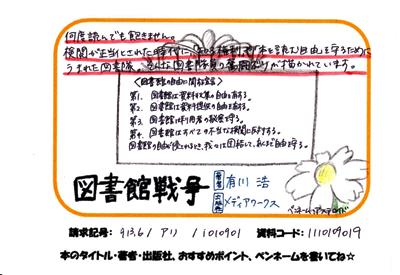 何度読んでも飽きません。
検閲が正当とされた時代に、知る権利、本を読む自由を守るために
うまれた図書隊。 図書隊員の奮闘ぶりが描かれています。
<図書館の自由に関する宣言>
第1. 図書館は資料収集の自由を有する。
第2. 図書館は資料提供の自由を有する。
第3. 図書館は利用者の秘密を守る。
第4. 図書館はすべての不当な検閲に反対する。
図書館の自由が侵されるとき、我々は団結して、あくまで自由を守る。
図書館戦争
著者 有川 浩
出版社 メディアワークス
ペンネーム
請求記号: 913.6 / アリ / 1010901 資料コード: 111019019
本のタイトル・著者・出版社、おすすめポイント、ペンネームを書いてね☆